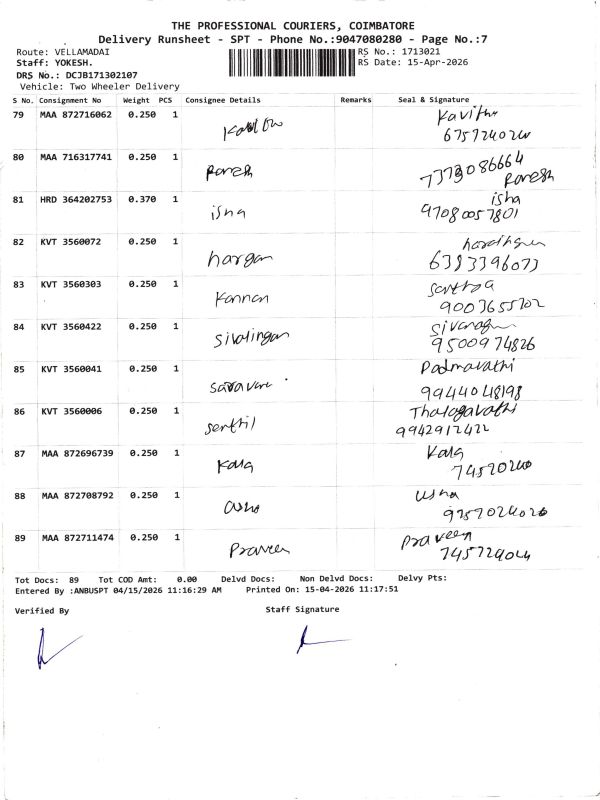 THE PROFESSIONAL COURIERS, COIMBATORE
Delivery Runsheet - SPT - Phone No.:9047080280 - Page No.:7
Route: VELLAMADAI RS No.: 1713021
Staff: YOKESH. RS Date: 15-Apr-2026
DRS No.: DCJB171302107
Vehicle: Two Wheeler Delivery
S No. Consignment No Weight PCS Consignee Details Remarks Seal & Signature
79 MAA 872716062 0.250 1 Kavitha
80 MAA 716317741 0.250 1 Paresh 7373086664 Paresh
81 HRD 364202753 0.370 1 isha isha
97080057801
82 KVT 3560072 0.250 1
6383396073
83 KVT 3560303 0.250 1 Kannan
84 KVT 3560422 0.250 1 Sivalingan
9500974826
85 KVT 3560041 0.250 1 Padmavathi
9944048198
86 KVT 3560006 0.250 1 Senthil
9942912422
87 MAA 872696739 0.250 1 Kala Kala
88 MAA 872708792 0.250 1 Usha Usha
89 MAA 872711474 0.250 1 Praveen Praveen
Tot Docs: 89 Tot COD Amt: 0.00 Delvd Docs: Non Delvd Docs: Delvy Pts:
Entered By :ANBUSPT 04/15/2026 11:16:29 AM Printed On: 15-04-2026 11:17:51
Verified By Staff Signature